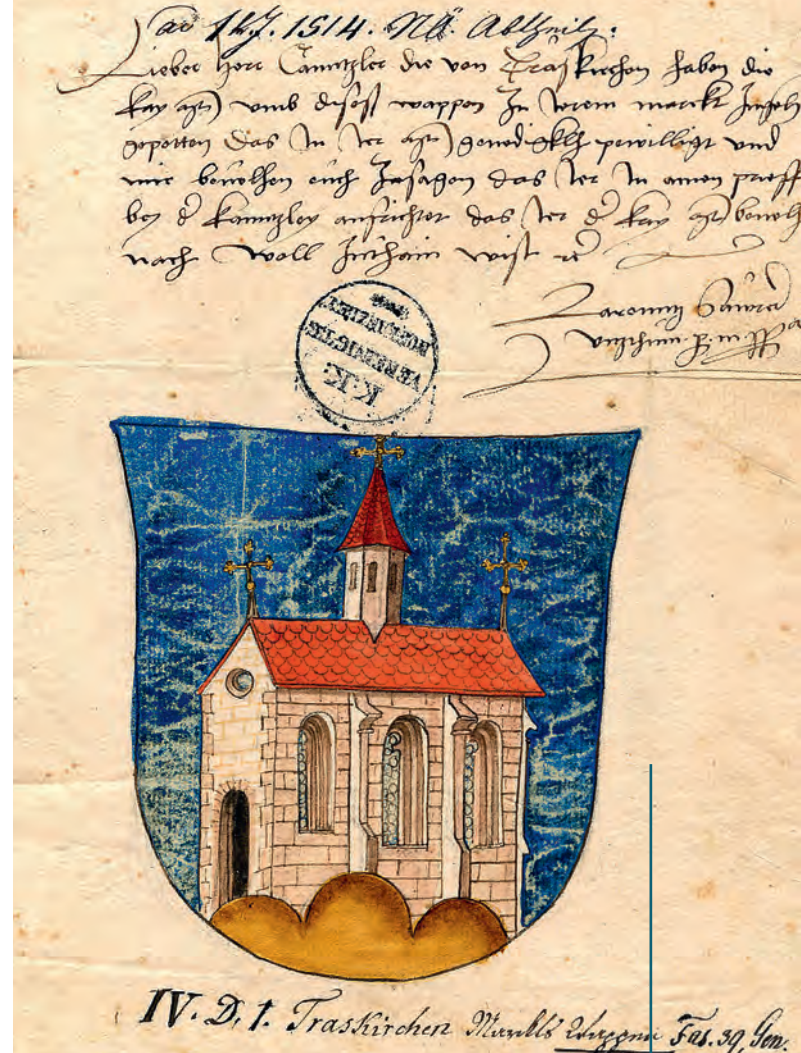 ad 147. 1514. NÖ. Abtheil:
Lieber Herr Canntzler die von Traskirchen haben die
kay mt) umb dises wappen In irem marckt
gepotten das In ir mt) genedigklich pewilligt und
mir bevolhen euch Zusagen das ier In ainen prieff
bey d kanntzley aufrichtet das ier d kay mt) bevelh
nach woll Zuthain wist
K:K:
VEREINIGTE
HOFKANZLEY
IV. D. 1. Traskirchen Markts Wappen Fas. 39, Gen.